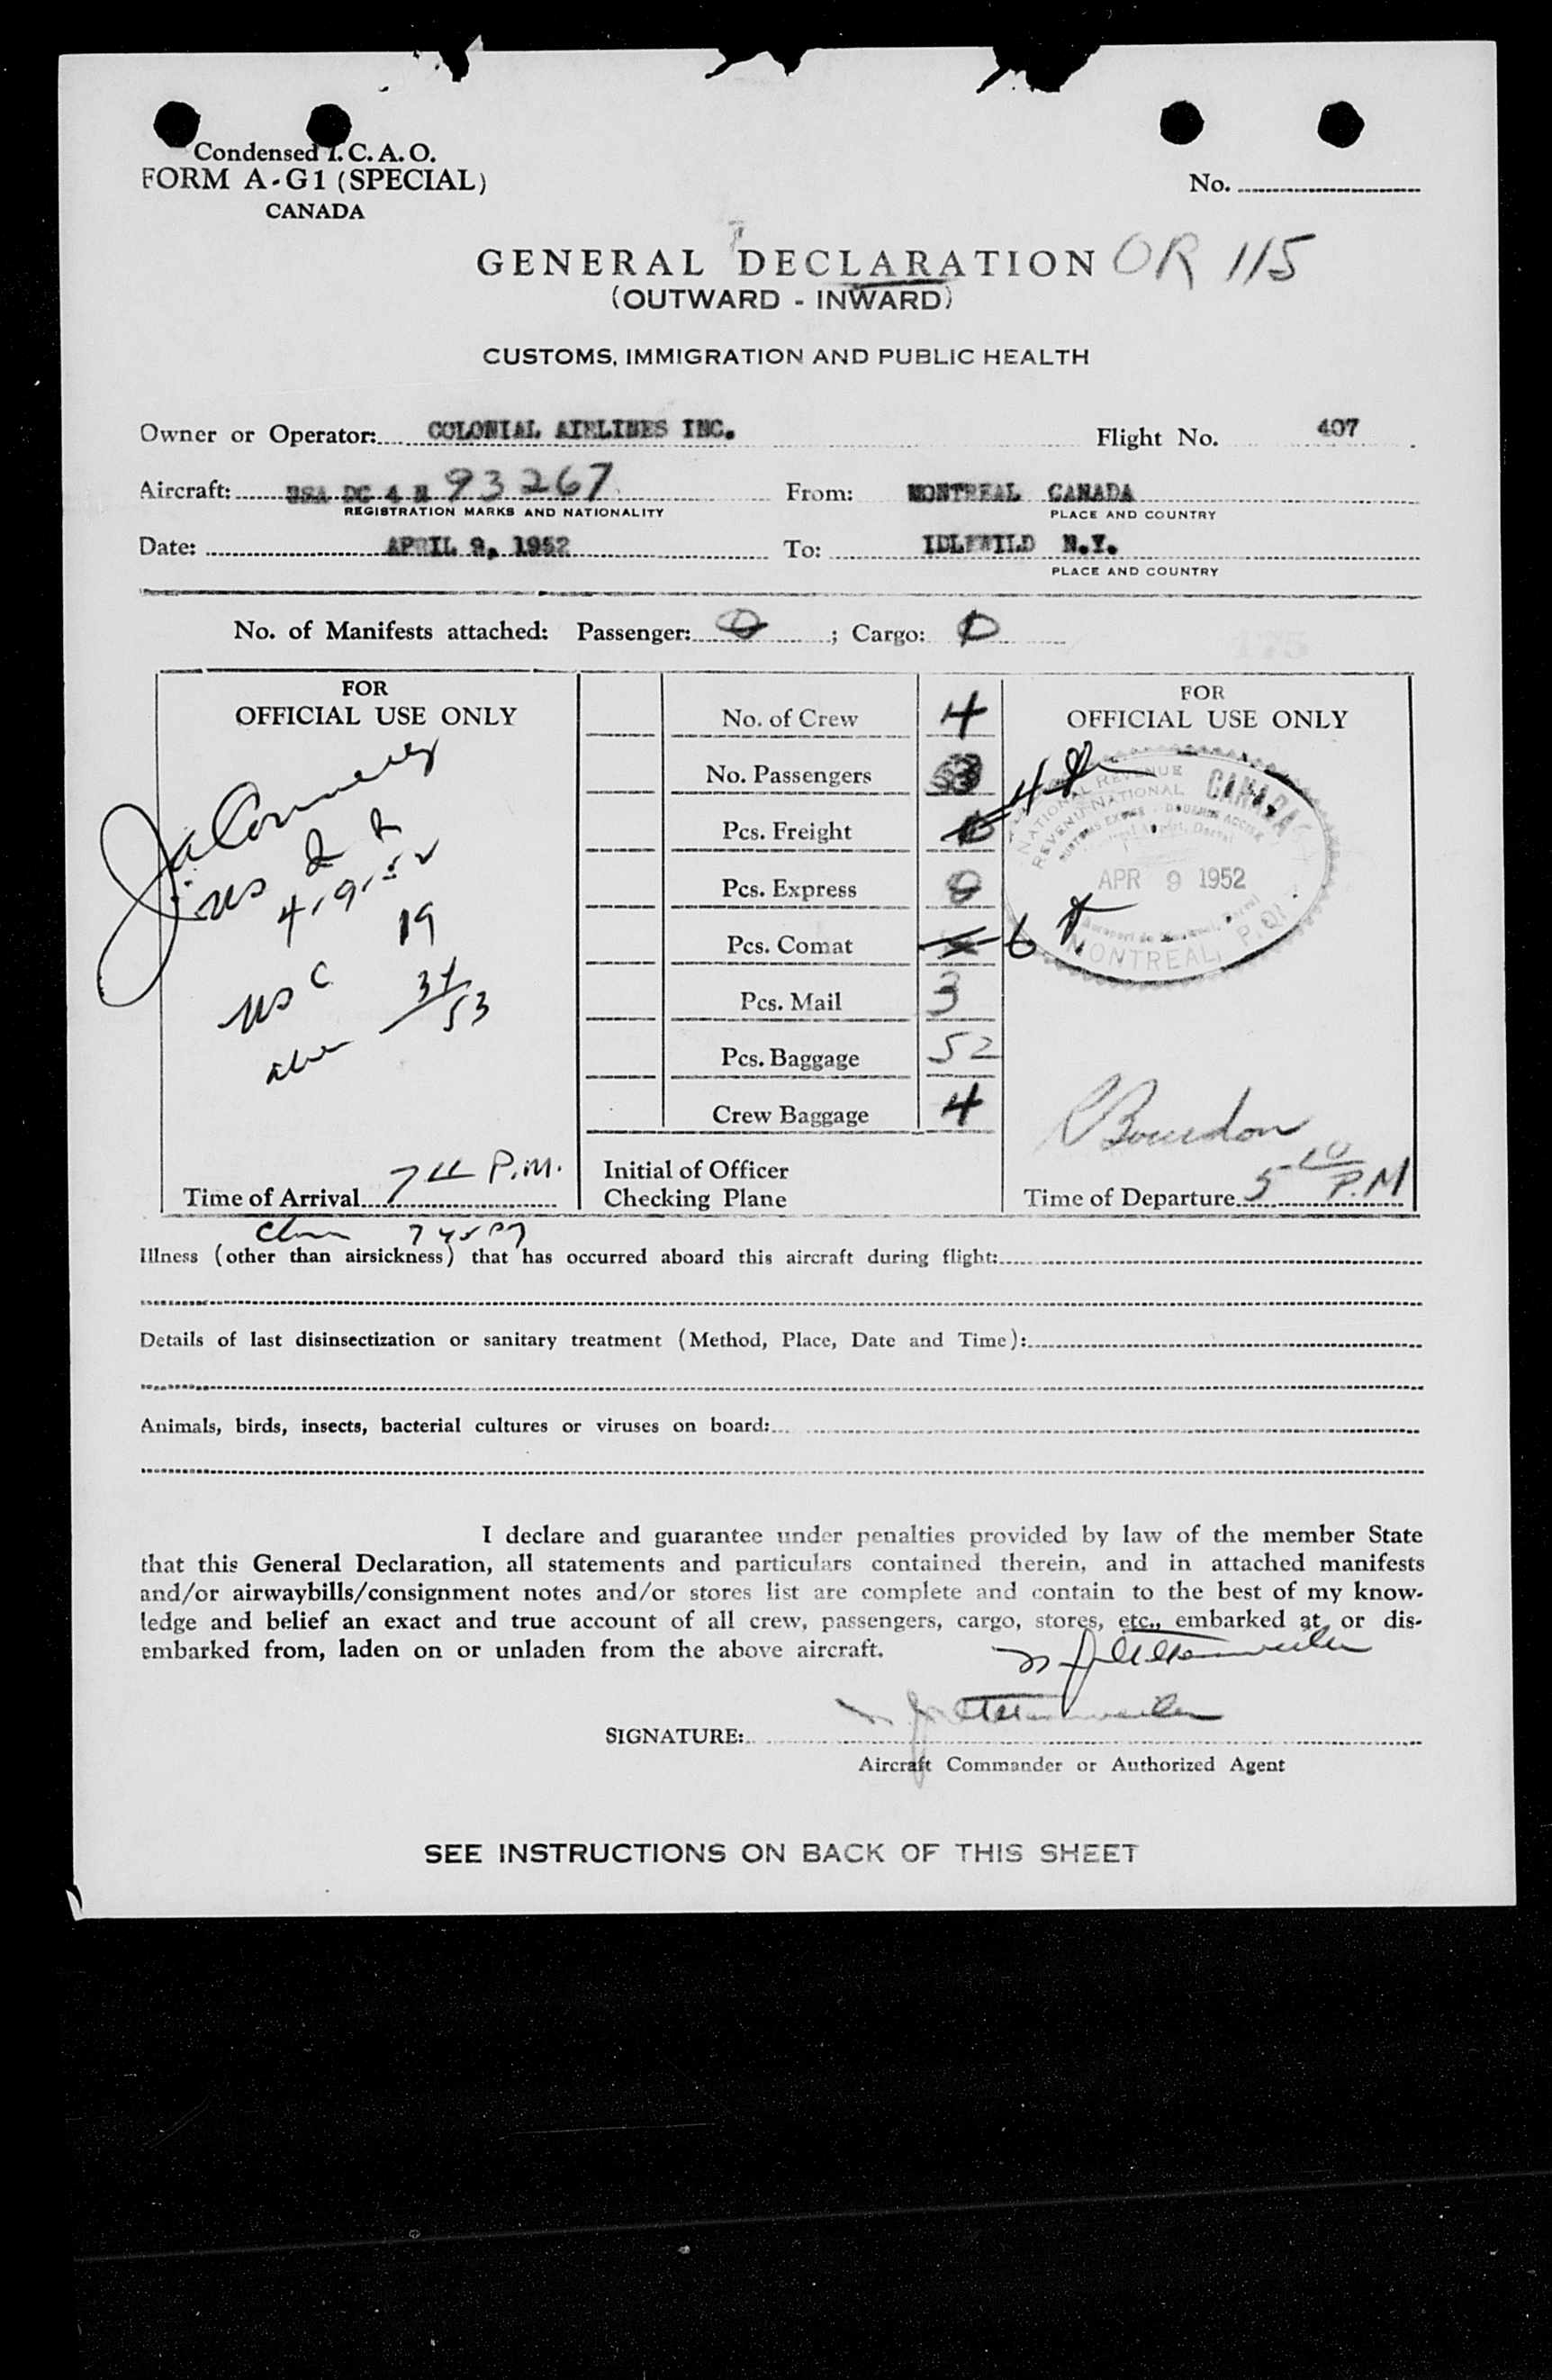 Condensed I. C. A. O.
FORM A-G1 (SPECIAL)
CANADA
No.
GENERAL DECLARATION OR 115
(OUTWARD - INWARD)
CUSTOMS, IMMIGRATION AND PUBLIC HEALTH
Owner or Operator: COLONIAL AIRLINES INC. Flight No. 407
Aircraft: USA DC 4 N 93267 From: MONTREAL CANADA
REGISTRATION MARKS AND NATIONALITY PLACE AND COUNTRY
Date: APRIL 9, 1952 To: IDLEWILD N.Y.
PLACE AND COUNTRY
No. of Manifests attached: Passenger: 0 ; Cargo: 0
175
FOR
OFFICIAL USE ONLY
4-9-52
19
US C 34
53
Time of Arrival 7 11 P.M.
No. of Crew 4
No. Passengers 53
Pcs. Freight 4
Pcs. Express 0
Pcs. Comat 6
Pcs. Mail 3
Pcs. Baggage 52
Crew Baggage 4
Initial of Officer
Checking Plane
FOR
OFFICIAL USE ONLY
NATIONAL REVENUE CANADA
REVENU NATIONAL
APR 9 1952
MONTREAL, P.Q.
R Bourdon
Time of Departure 5 10 P.M
7 45 PM
Illness (other than airsickness) that has occurred aboard this aircraft during flight:
Details of last disinsectization or sanitary treatment (Method, Place, Date and Time):
Animals, birds, insects, bacterial cultures or viruses on board:
I declare and guarantee under penalties provided by law of the member State
that this General Declaration, all statements and particulars contained therein, and in attached manifests
and/or airwaybills/consignment notes and/or stores list are complete and contain to the best of my know-
ledge and belief an exact and true account of all crew, passengers, cargo, stores, etc., embarked at, or dis-
embarked from, laden on or unladen from the above aircraft.
SIGNATURE:
Aircraft Commander or Authorized Agent
SEE INSTRUCTIONS ON BACK OF THIS SHEET